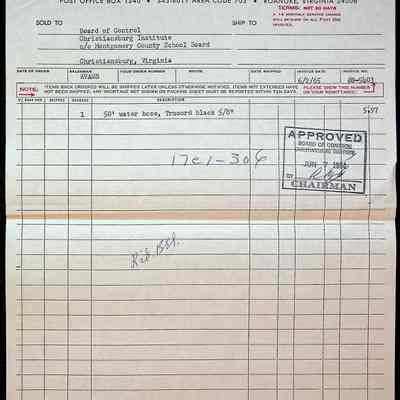 POST OFFICE BOX 1240 • 34346011 AREA CODE 703 • ROANOKE, VIRGINIA 24006
TERMS: NET 30 DAYS
SOLD TO
SHIP TO
Board of Control
Christiansburg Institute
c/o Montgomery County School Board
Christiansburg, Virginia
DATE OF ORDER SALESMAN INVOICE DATE INVOICE NO.
EVANS 6/2/65
NOTE: ITEMS BACK ORDERED WILL BE SHIPPED LATER UNLESS OTHERWISE NOTIFIED. ITEMS NOT EXTENDED HAVE PLEASE SHOW THIS NUMBER
NOT BEEN SHIPPED. ANY SHORTAGE NOT SHOWN ON PACKING SHEET MUST BE REPORTED WITHIN TEN DAYS. ON YOUR REMITTANCE.
DESCRIPTION
1 50' water hose, Trucord black 5/8" 5.97
17e1-306
APPROVED
BOARD OF CONTROL
CHRISTIANSBURG INSTITUTE
JUN
BY
CHAIRMAN